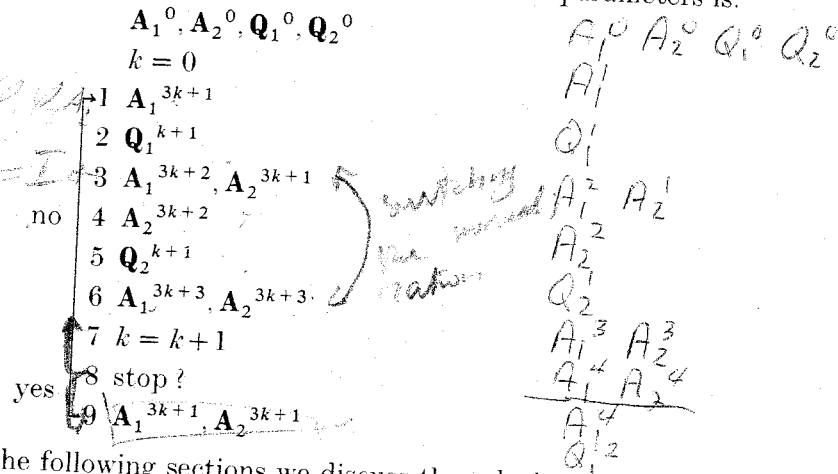 parameters is:
A₁⁰, A₂⁰, Q₁⁰, Q₂⁰
k = 0
1 A₁³ᵏ⁺¹
2 Q₁ᵏ⁺¹
3 A₁³ᵏ⁺², A₂³ᵏ⁺¹
no 4 A₂³ᵏ⁺²
5 Q₂ᵏ⁺¹
6 A₁³ᵏ⁺³, A₂³ᵏ⁺³
7 k = k+1
yes 8 stop?
9 A₁³ᵏ⁺¹, A₂³ᵏ⁺¹
he following sections we discuss the
= I
switching
the
A₁⁰ A₂⁰ Q₁⁰ Q₂⁰
A₁¹
Q₁¹
A₁² A₂¹
A₂²
Q₂¹
A₁³ A₂³
A₁⁴ A₂⁴
A₁⁴
Q₁²